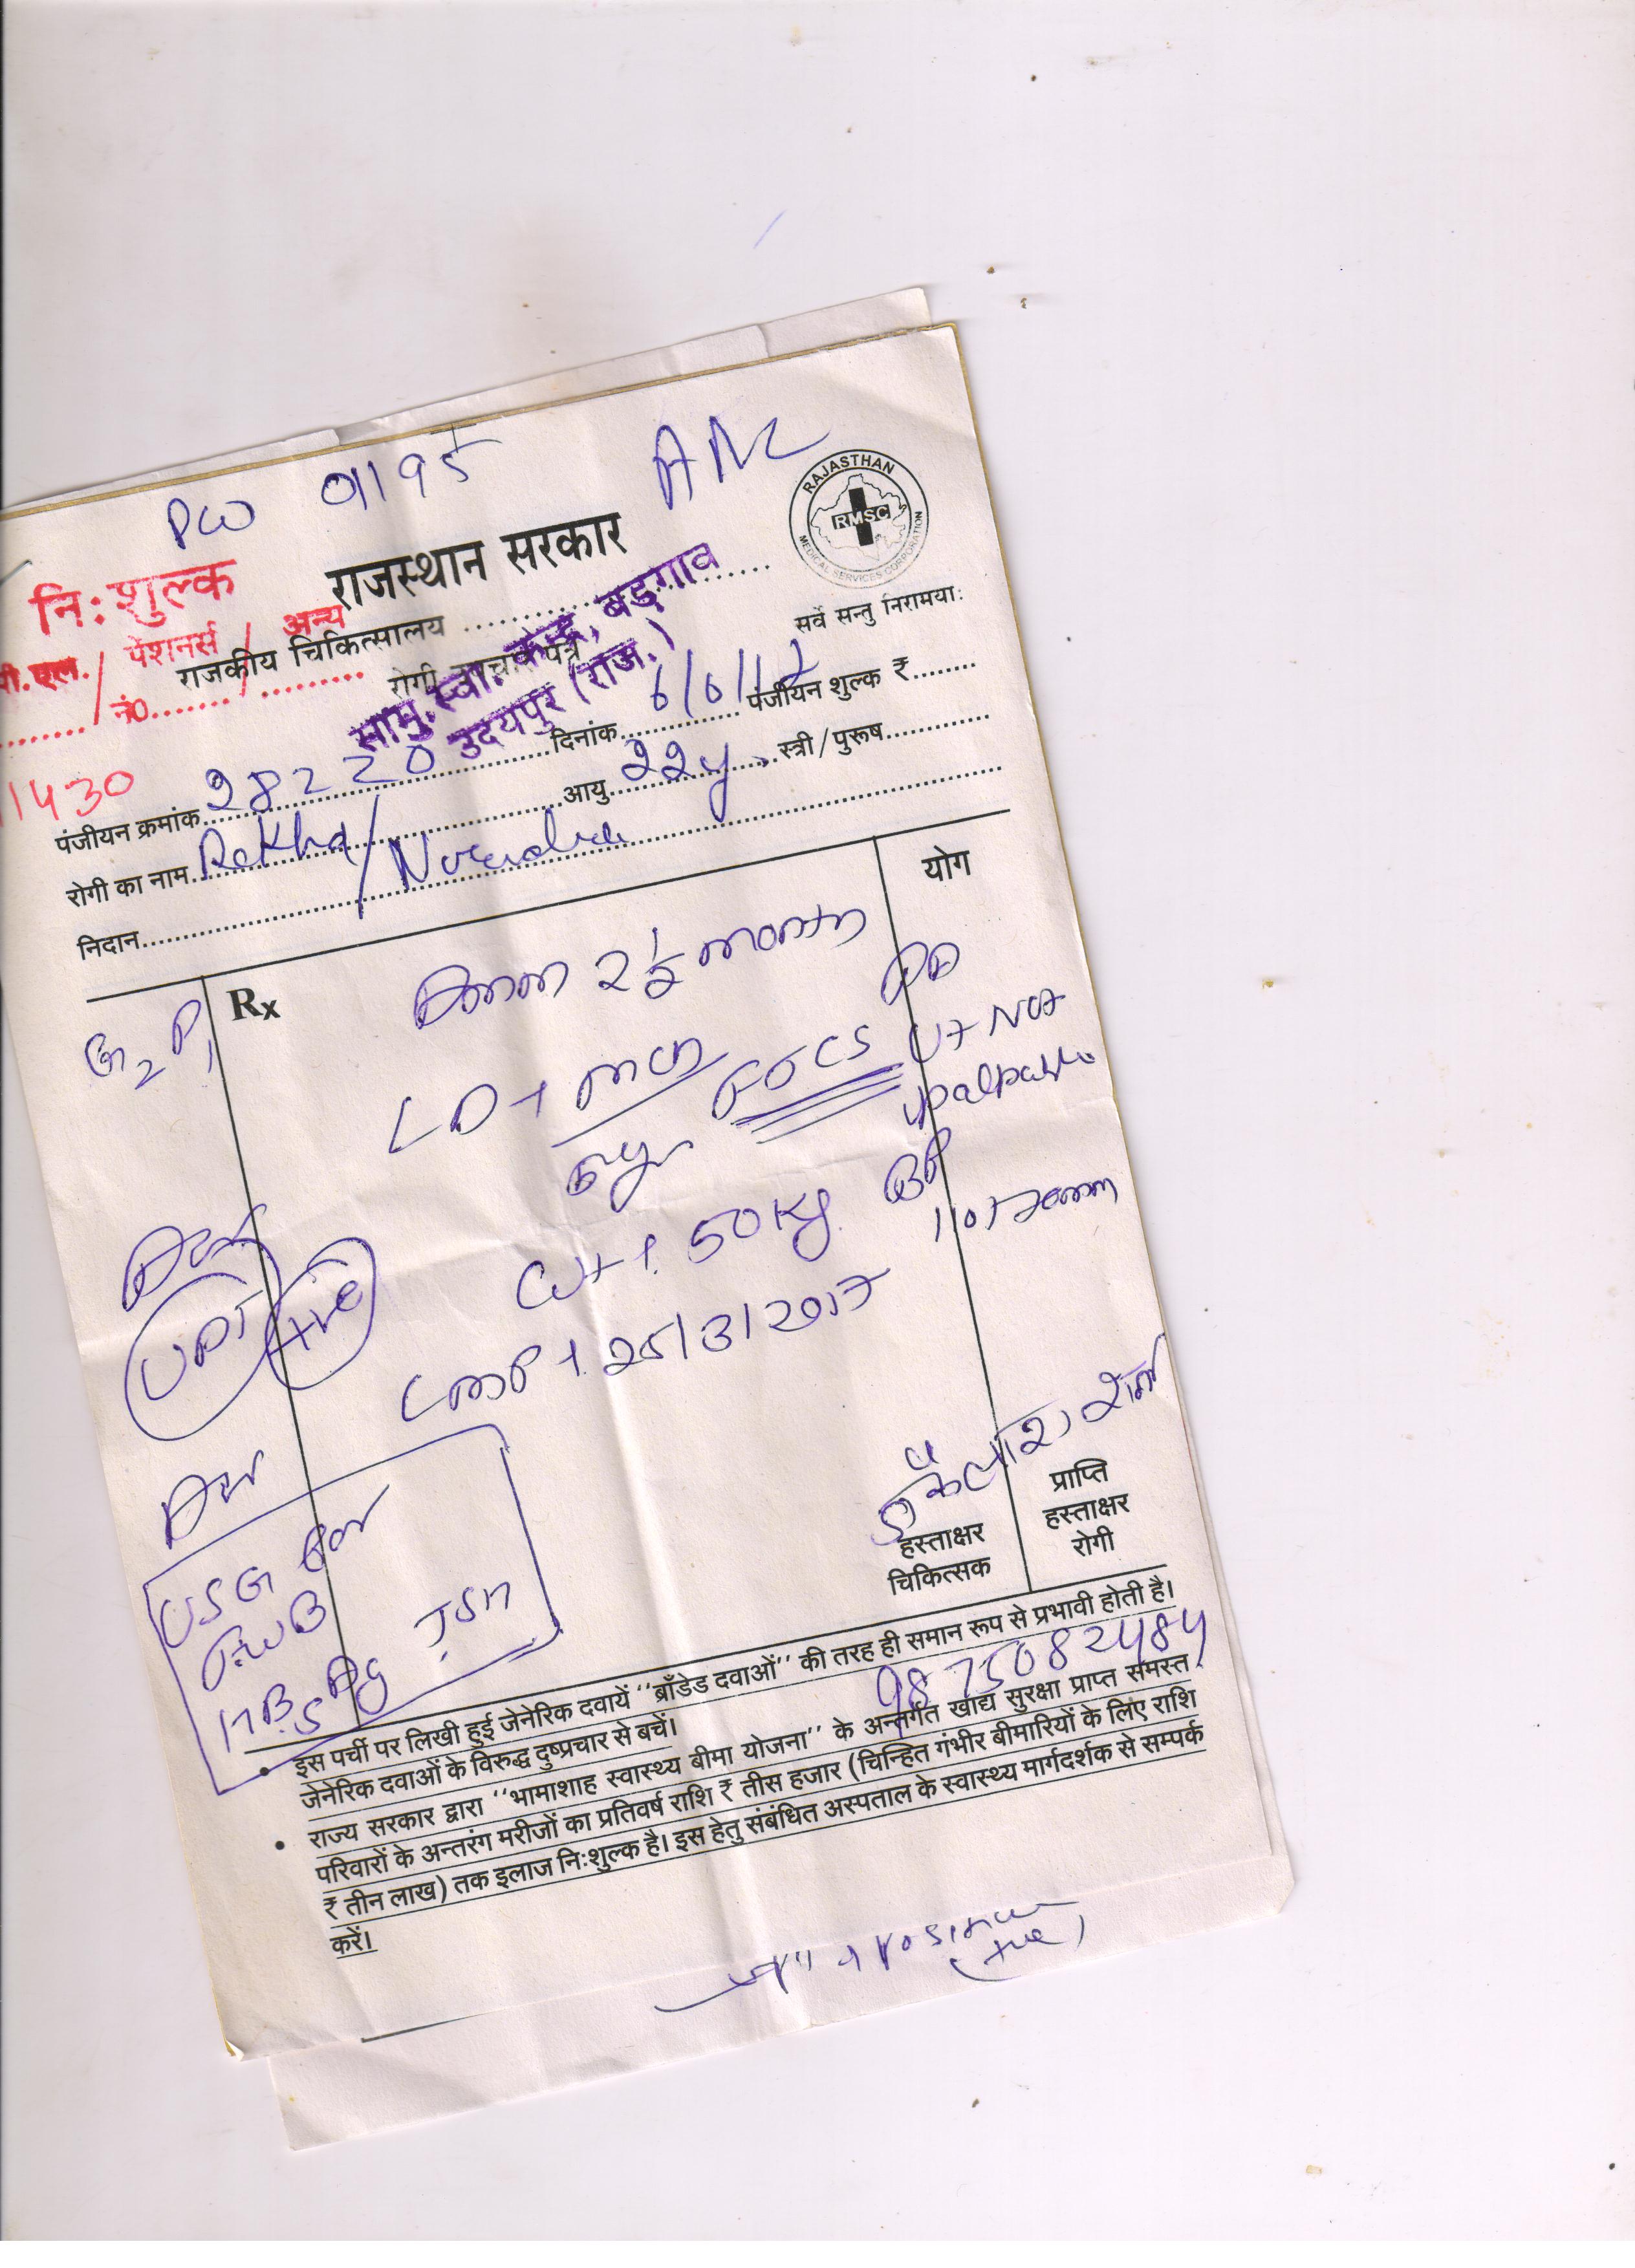 PW 01195 ANC
RAJASTHAN
RMSC
MEDICAL SERVICES CORPORATION
नि:शुल्क
राजस्थान सरकार
पी.एल./ पेंशनर्स / अन्य
राजकीय चिकित्सालय
सर्वे सन्तु निरामयाः
नं0
रोगी उपचार पत्र
सामु.स्वा.केन्द्र, बड़गांव
उदयपुर (राज.)
1430
पंजीयन क्रमांक 28220 दिनांक 6/6/17 पंजीयन शुल्क ₹
रोगी का नाम Rekha/ आयु 22y. स्त्री/पुरूष
निदान
योग
Rx
G2P1
2 1/2 month
PA
LD +
FTLCS
Ut Not
palpable
5yr
BP
110/70mm
Wt. 50Kg.
Adv
UPT +ve
LMP +. 25/3/2017
Adv
USG for
FWB
HBsAg
हस्ताक्षर
चिकित्सक
प्राप्ति
हस्ताक्षर
रोगी
• इस पर्ची पर लिखी हुई जेनेरिक दवायें ''ब्राँडेड दवाओं'' की तरह ही समान रूप से प्रभावी होती है।
जेनेरिक दवाओं के विरुद्ध दुष्प्रचार से बचें।
9875082484
• राज्य सरकार द्वारा ''भामाशाह स्वास्थ्य बीमा योजना'' के अन्तर्गत खाद्य सुरक्षा प्राप्त समस्त
परिवारों के अन्तरंग मरीजों का प्रतिवर्ष राशि ₹ तीस हजार (चिन्हित गंभीर बीमारियों के लिए राशि
₹ तीन लाख) तक इलाज नि:शुल्क है। इस हेतु संबंधित अस्पताल के स्वास्थ्य मार्गदर्शक से सम्पर्क
करें।
(+ve)